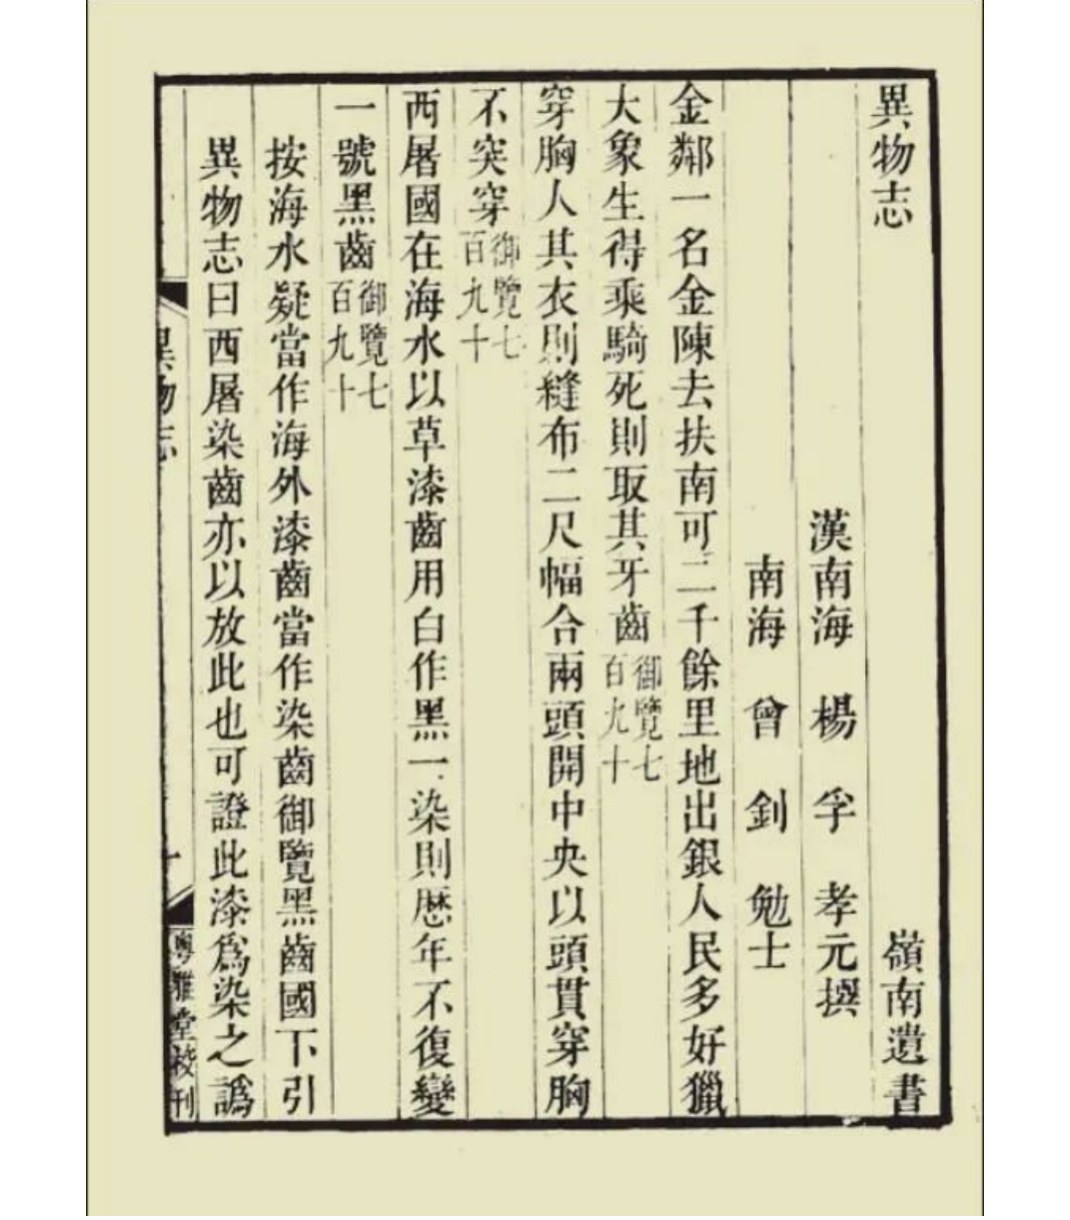 異物志 嶺南遺書
漢南海 楊 孚 孝元撰
南海 曾 釗 勉士
金鄰一名金陳去扶南可二千餘里地出銀人民多好獵
大象生得乘騎死則取其牙齒御覽七百九十
穿胸人其衣則縫布二尺幅合兩頭開中央以頭貫穿胸
不突穿御覽七百九十
西屠國在海水以草漆齒用白作黑一染則歷年不復變
一號黑齒御覽七百九十
按海水疑當作海外漆齒當作染齒御覽黑齒國下引
異物志曰西屠染齒亦以放此也可證此漆爲染之譌
異物志 一 粵雅堂校刊